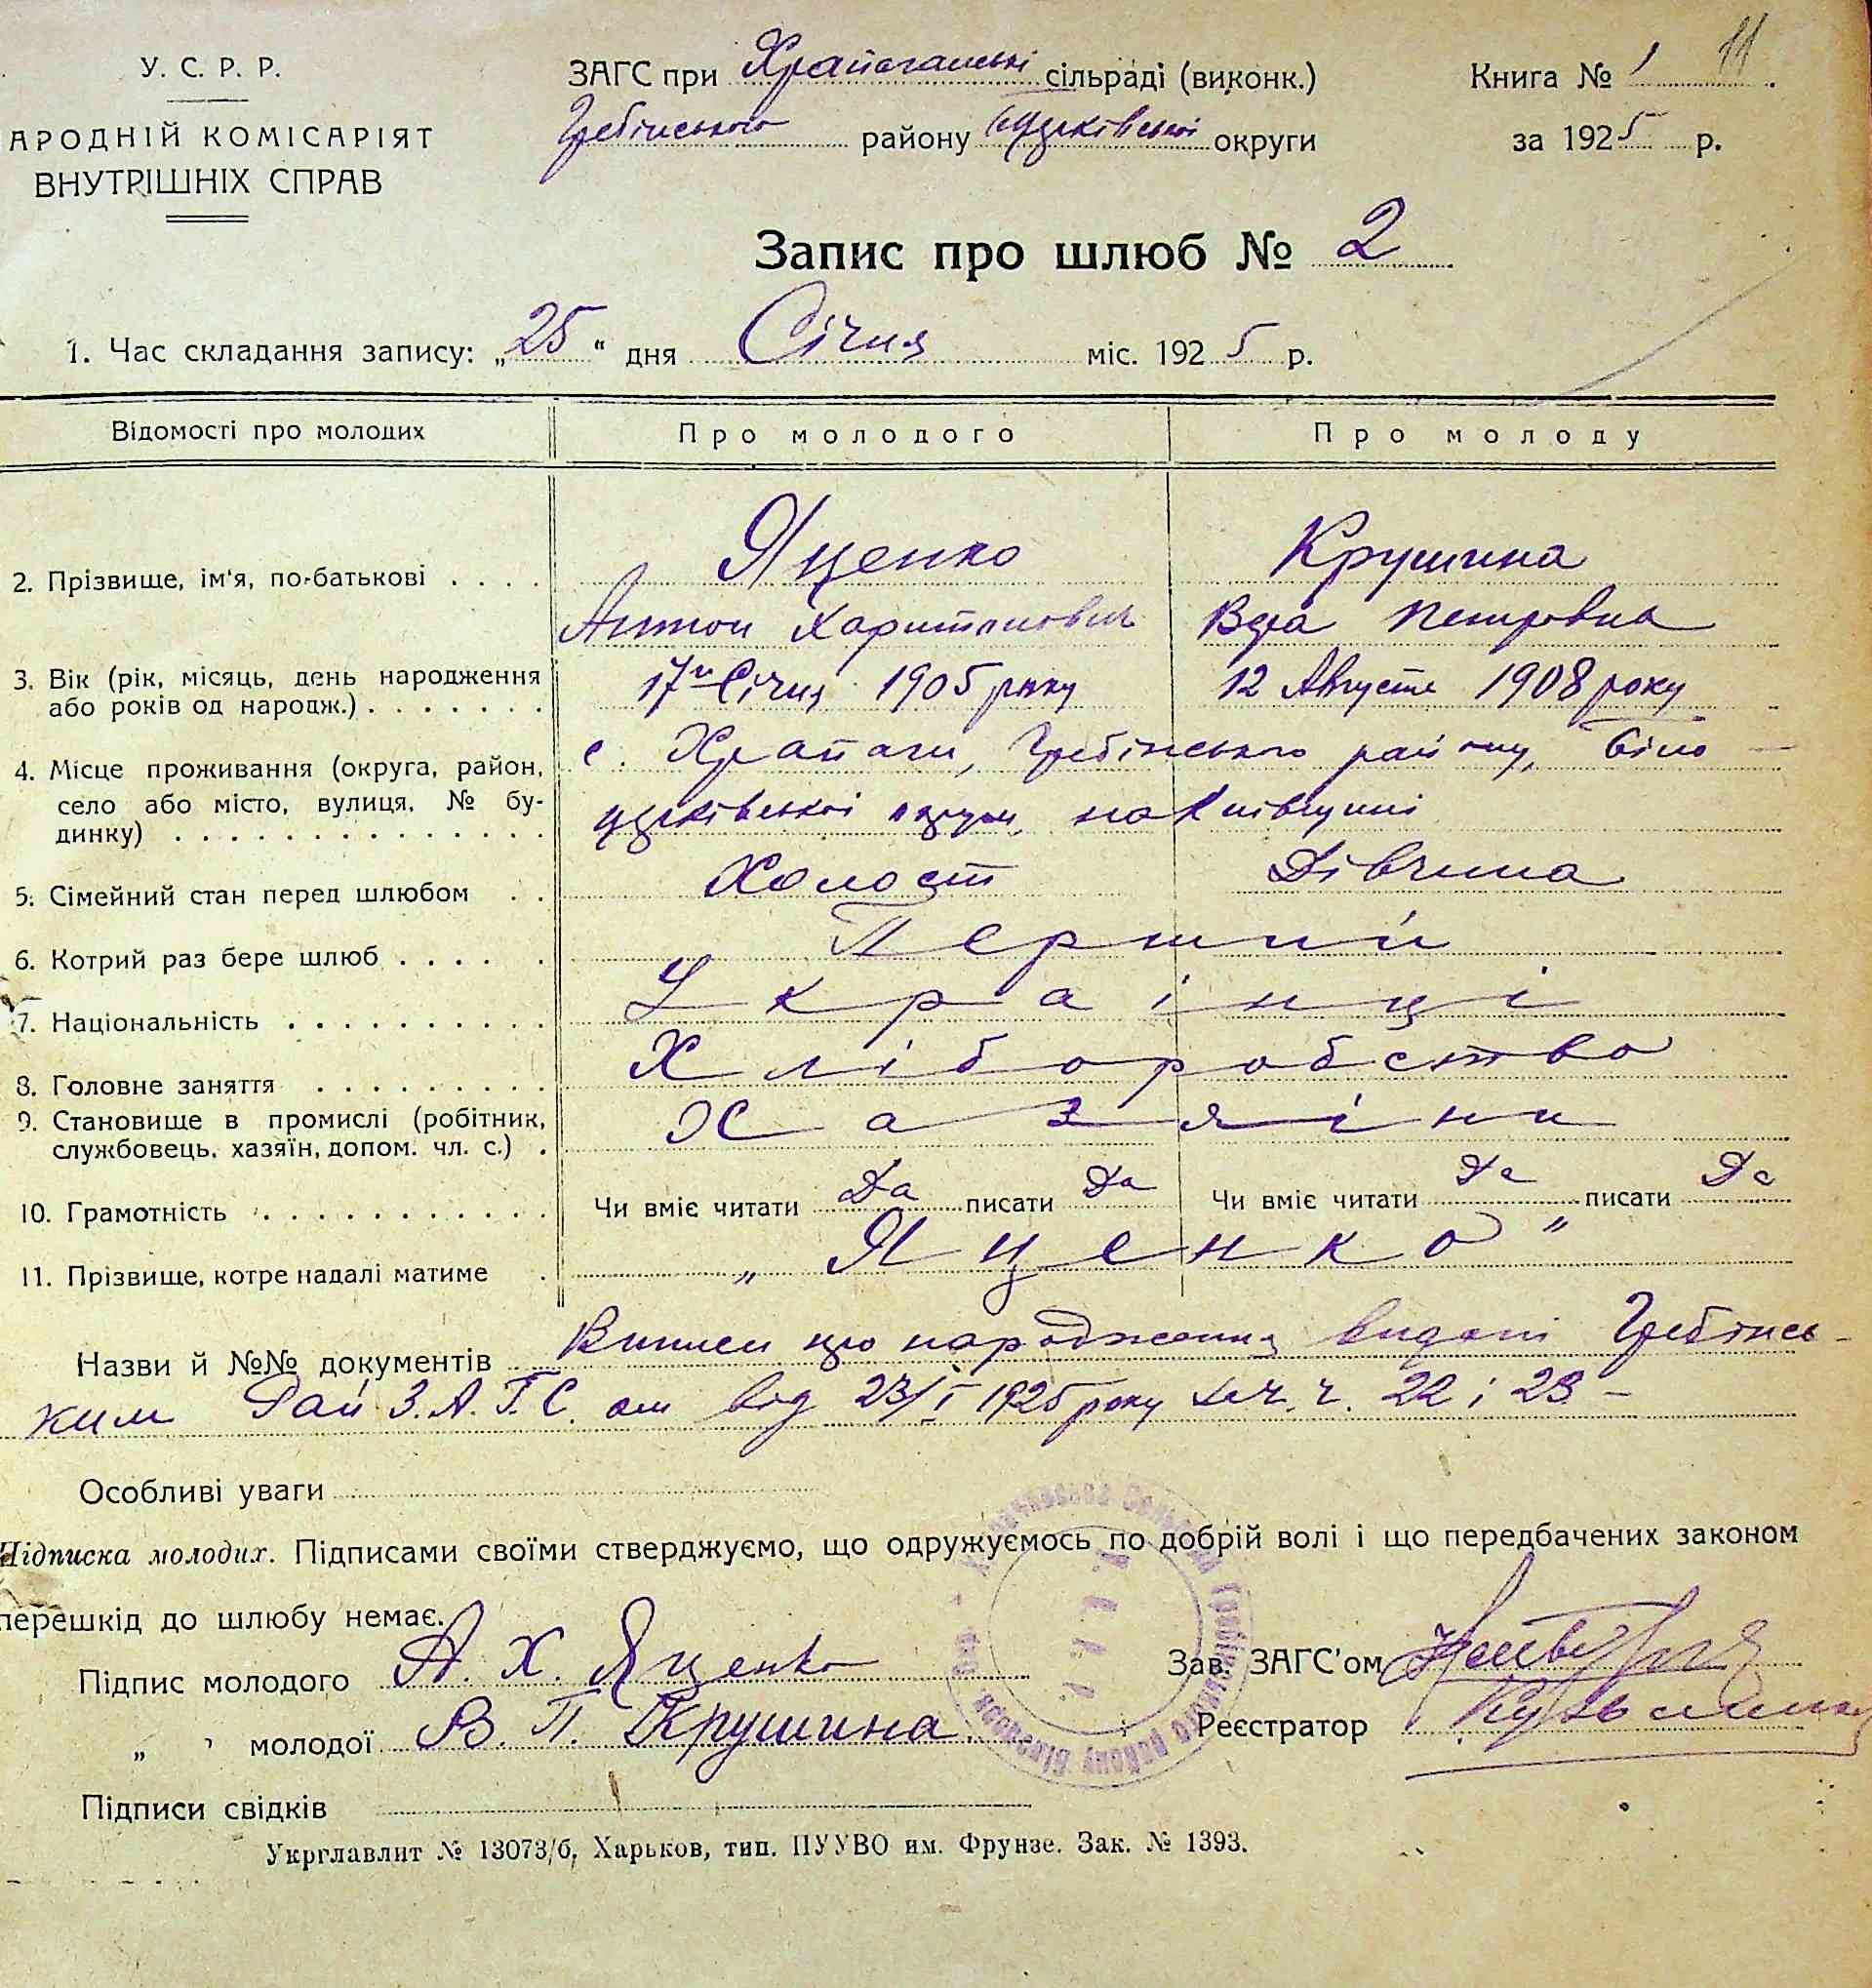 У. С. Р. Р.
АРОДНІЙ КОМІСАРІЯТ
ВНУТРІШНІХ СПРАВ
ЗАГС при сільраді (виконк.)
Гребінського району Церківської округи
Книга № 1 11
за 1925 р.
Запис про шлюб № 2
1. Час складання запису: „25“ дня Січня міс. 1925 р.
Відомості про молодих Про молодого Про молоду
2. Прізвище, ім'я, по-батькові . . . . Яценко Крушина
Антон Харитонович Вера Петровна
3. Вік (рік, місяць, день народження або років од народж.) . . . . . . . 17го Січня 1905 року 12 Августа 1908 року
4. Місце проживання (округа, район, село або місто, вулиця, № будинку) . . . . . . . . . . . . . . с. Храпачи, Гребінського району, Біло-
церківської округи, на Київщині
5. Сімейний стан перед шлюбом . . Холост Дівчина
6. Котрий раз бере шлюб . . . . . Перший
7. Національність . . . . . . . . . . Українці
8. Головне заняття . . . . . . . . . Хліборобство
9. Становище в промислі (робітник, службовець, хазяїн, допом. чл. с.) . Хазяіни
10. Грамотність . . . . . . . . . . . Чи вміє читати Да писати Да Чи вміє читати Да писати Да
11. Прізвище, котре надалі матиме . „Яценко"
Назви й №№ документів Виписи про народження видані Гребінсь-
ким Рай З.А.Г.С. ом від 23/I 1925 року ч. 22 і 23 –
Особливі уваги
Підписка молодих. Підписами своїми стверджуємо, що одружуємось по добрій волі і що передбачених законом
перешкід до шлюбу немає.
Підпис молодого А. Х. Яценко Зав. ЗАГС'ом
„ „ молодої В. П. Крушина Реєстратор
Підписи свідків
Укрглавлит № 13073/б, Харьков, тип. ПУУВО им. Фрунзе. Зак. № 1393.